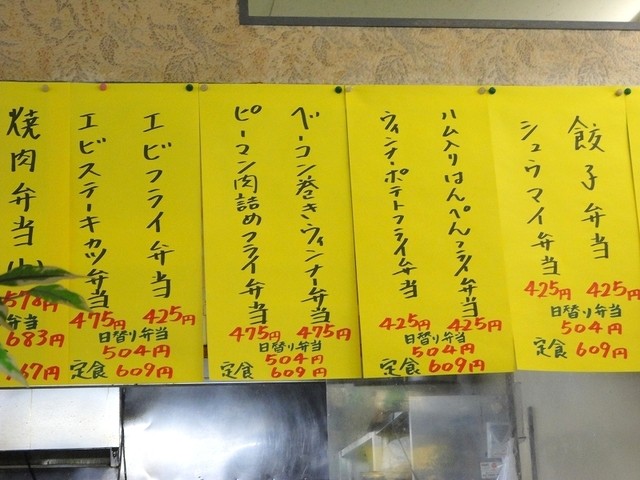 餃子弁当
425円
シュウマイ弁当
425円
日替り弁当
504円
定食 609円
ハム入りはんぺんフライ弁当
425円
ウィンナーポテトフライ弁当
425円
日替り弁当
504円
定食 609円
ベーコン巻きウィンナー弁当
475円
ピーマン肉詰めフライ弁当
475円
日替り弁当
504円
定食 609円
エビフライ弁当
425円
エビステーキカツ弁当
475円
日替り弁当
504円
定食 609円
焼肉弁当
弁当
683円